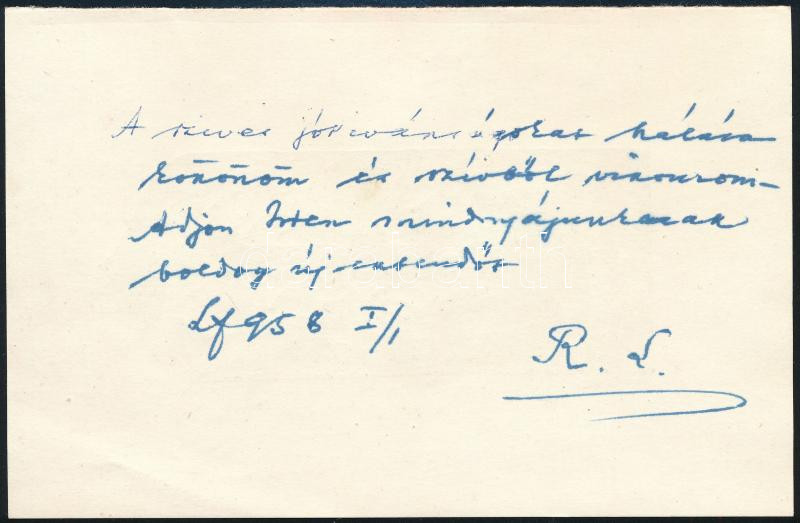 A szives jókivánságokat hálásan
köszönöm és szívből viszonzom –
Adjon Isten mindnyájunknak
boldog új esztendőt
Lf 958 I/1
R. L.
darabanth